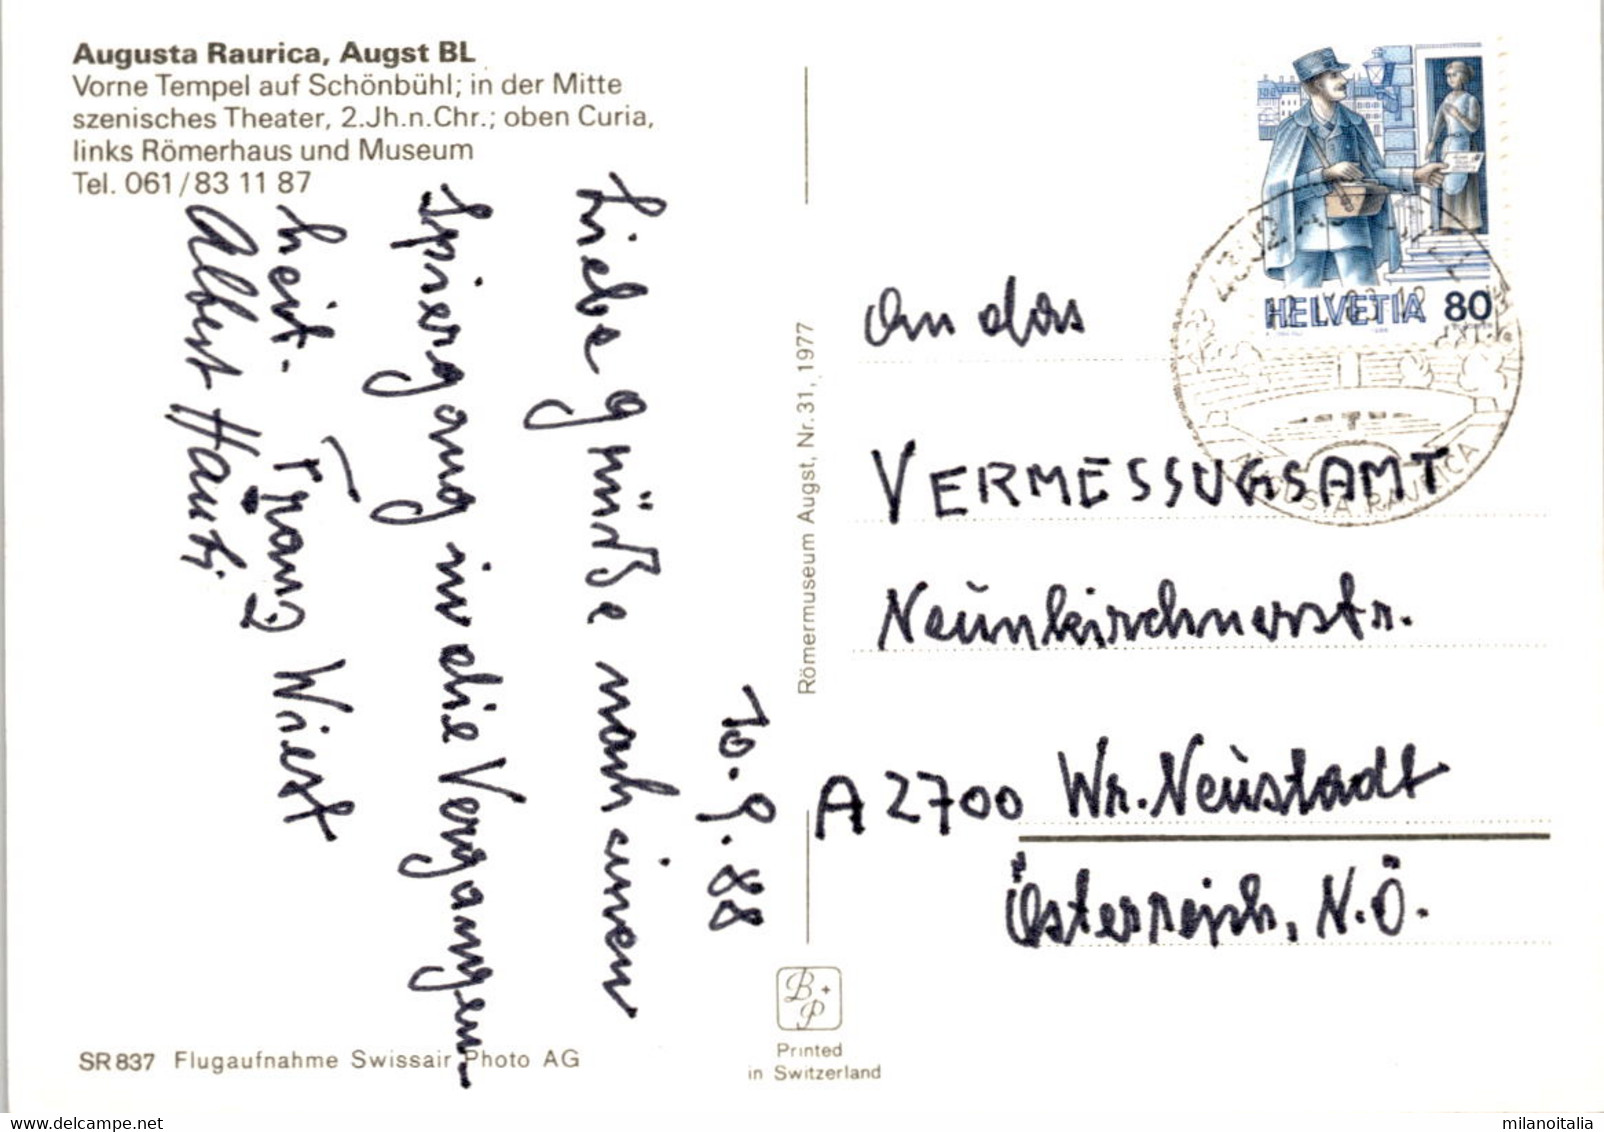 Augusta Raurica, Augst BL
Vorne Tempel auf Schönbühl; in der Mitte
szenisches Theater, 2.Jh.n.Chr.; oben Curia,
links Römerhaus und Museum
Tel. 061/83 11 87
10.9.88
Liebe grüße nach einen
Spiergang in die Vergangen-
heit.
Franz Wiest
Albert
Römermuseum Augst, Nr. 31, 1977
HELVETIA 80
AUGUSTA RAURICA
An das
VERMESSUGSAMT
Neunkirchnerstr.
A 2700 Wr. Neustadt
Österreich, N.Ö.
B+P
Printed
in Switzerland
SR 837 Flugaufnahme Swissair Photo AG
milanoitalia